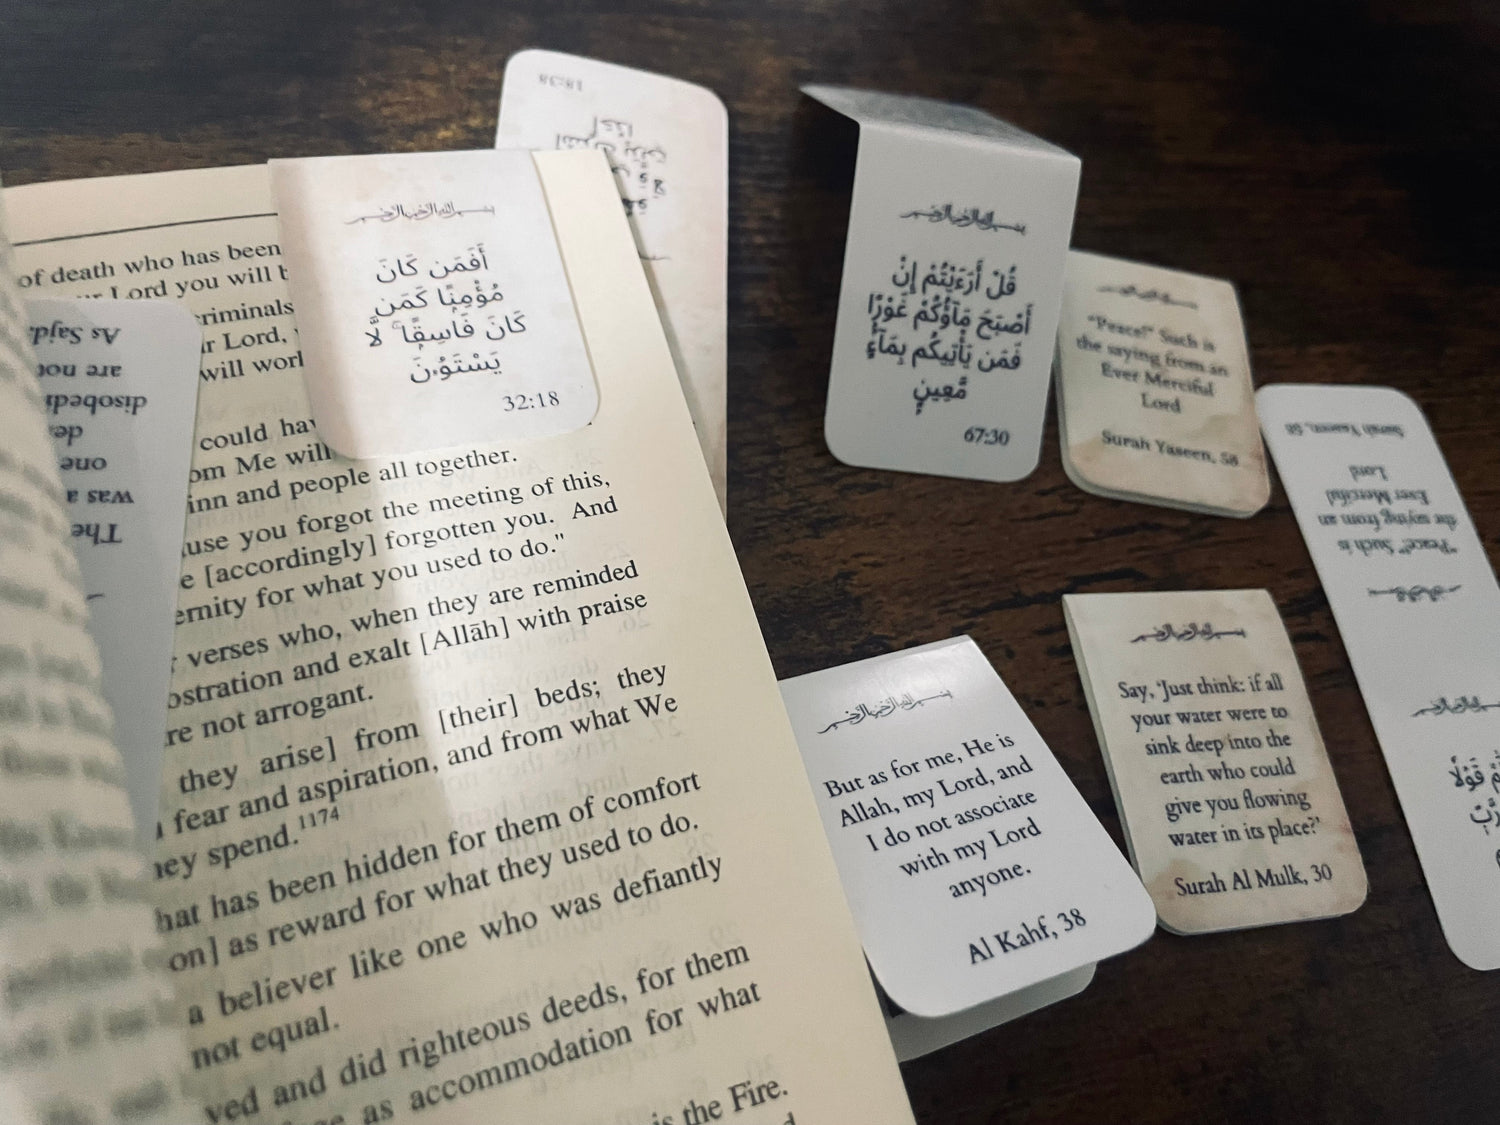 of death who has been
Lord you will
criminals
Lord,
will
could
Me will
inn and people all together.
you forgot the meeting of this,
[accordingly] forgotten you. And
for what you used to do."
verses who, when they are reminded
and exalt [Allāh] with praise
not arrogant.
they arise] from [their] beds; they
fear and aspiration, and from what We
spend.1174
has been hidden for them of comfort
as reward for what they used to do.
a believer like one who was defiantly
not equal.
and did righteous deeds, for them
as accommodation for what
is the Fire.
The
was a
one
are not
As Sajd
بسم الله الرحمن الرحيم
أَفَمَن كَانَ
مُؤْمِنًا كَمَن
كَانَ فَاسِقًا ۚ لَّا
يَسْتَوُۥنَ
32:18
18:38
بسم الله الرحمن الرحيم
قُلْ أَرَءَيْتُمْ إِنْ
أَصْبَحَ مَآؤُكُمْ غَوْرًا
فَمَن يَأْتِيكُم بِمَآءٍ
مَّعِينٍۭ
67:30
"Peace!" Such is
the saying from an
Ever Merciful
Lord
Surah Yaseen, 58
"Peace!" Such is
the saying from an
Ever Merciful
Lord
Surah Yaseen, 58
بسم الله الرحمن الرحيم
But as for me, He is
Allah, my Lord, and
I do not associate
with my Lord
anyone.
Al Kahf, 38
بسم الله الرحمن الرحيم
Say, 'Just think: if all
your water were to
sink deep into the
earth who could
give you flowing
water in its place?'
Surah Al Mulk, 30
قَوْلًا